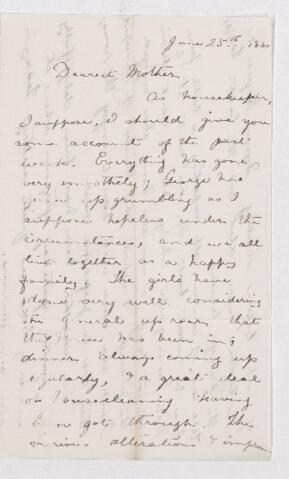 June 25th 1880
Dearest Mother,
As housekeeper,
I suppose, I should give you
some account of the past
week. Everything has gone
very smoothely; George has
given up grumbling as I
suppose hopeless under the
circumstances, and we all
live together as a happy
family. The girls have
done very well considering
the general uproar that
the house has been in;
dinner always coming up
regularly, & a great deal
of housecleaning having
been got through. The
various alterations & improve-